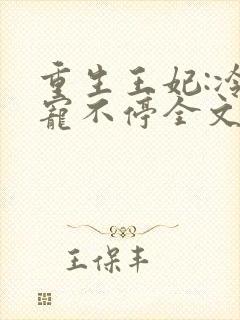 重生王妃:冷
寵不停全文
王保丰